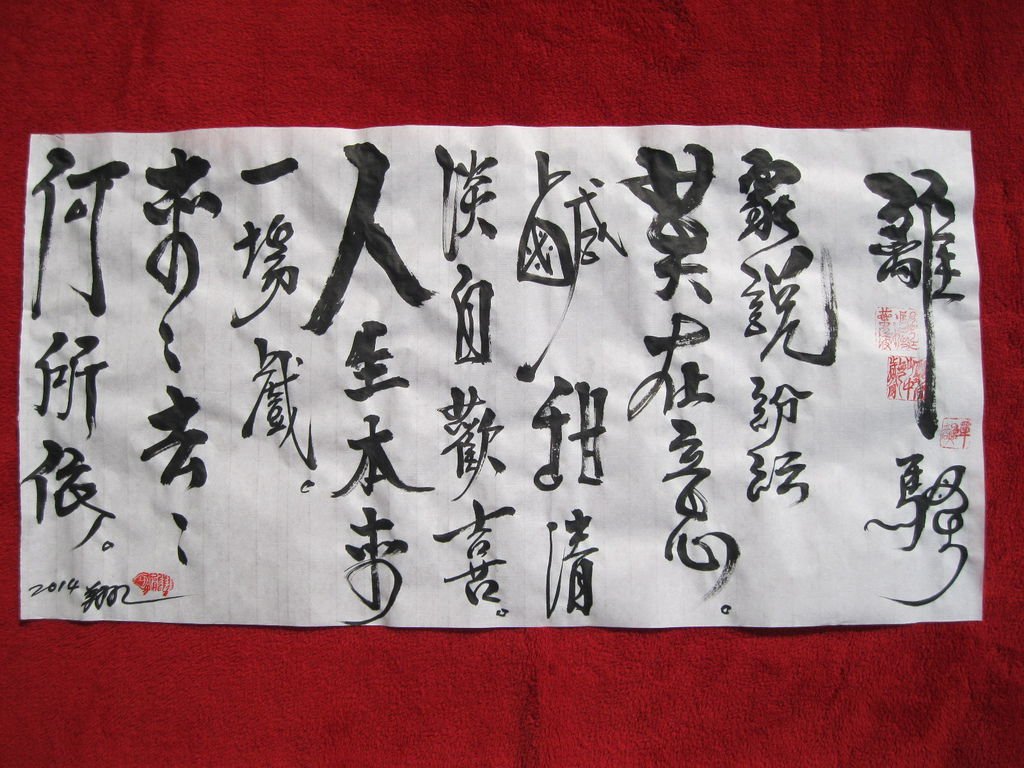 離騷
眾說紛紜
莫在意。
鹹甜清
淡自歡喜。
人生本來
一場戲。
來〻去〻
何所依。
2014